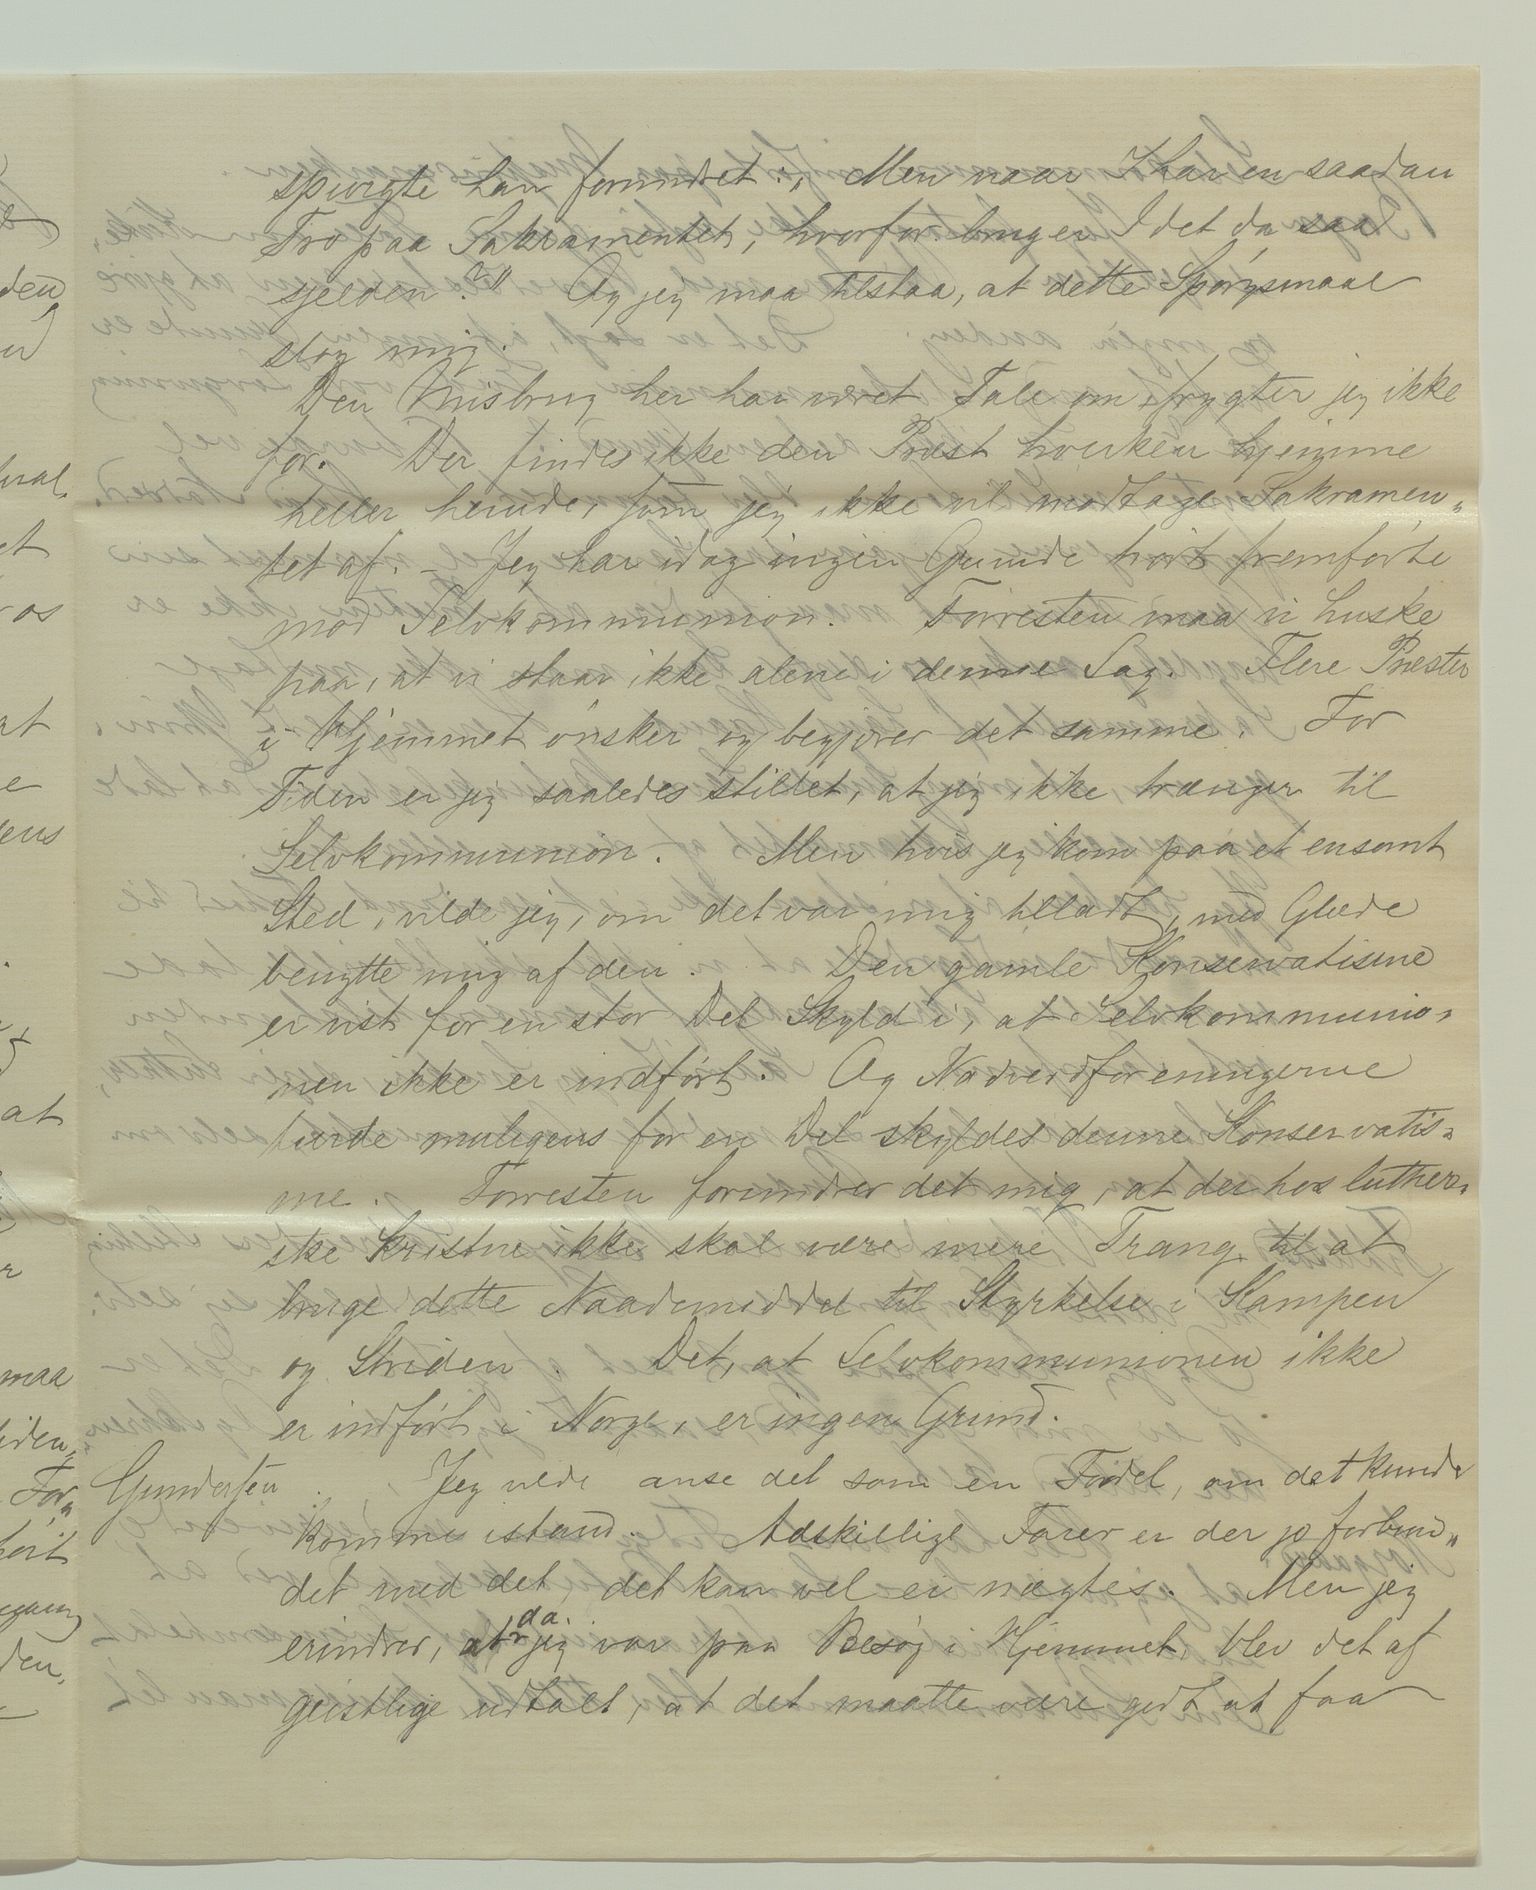 spurgte han forundret: „Men naar I har en saadan
Tro paa Sakramentet, hvorfor bruger I det da saa
sjelden?" Og jeg maa tilstaa, at dette Spørgsmaal
slog mig.
Den Misbrug her har været Tale om, frygter jeg ikke
for. Der findes ikke den Præst hverken hjemme
heller herude, som jeg ikke vil modtage Sakramen„
tet af. – Jeg har idag ingen Grunde hørt fremførte
mod Selvkommunion. Forresten maa vi huske
paa, at vi staar ikke alene i denne Sag. Flere Præster
i Hjemmet ønsker og begjærer det samme. For
Tiden er jeg saaledes stillet, at jeg ikke trænger til
Selvkommunion. Men hvis jeg kom paa et ensomt
Sted, vilde jeg, om det var mig tilladt, med Glæde
benytte mig af den. Den gamle Konservatisme
er vist for en stor Del Skyld i, at Selvkommunio„
nen ikke er indført. Og Nadverdforeningerne
turde muligens for en Del skyldes denne Konservatis„
me. Forresten forundrer det mig, at der hos luther„
ske Kristne ikke skal være mere Trang til at
bruge dette Naademiddel til Styrkelse i Kampen
og Striden. Det, at Selvkommunionen ikke
er indført i Norge, er ingen Grund.
Gundersen. Jeg vilde anse det som en Fordel, om det kunde
komme istand. Adskillige Farer er der jo forbun„
det med det, det kan vel ei nægtes. Men jeg
erindrer, at da jeg var paa Besøg i Hjemmet, blev det af
geistlige udtalt, at det maatte være godt at faa